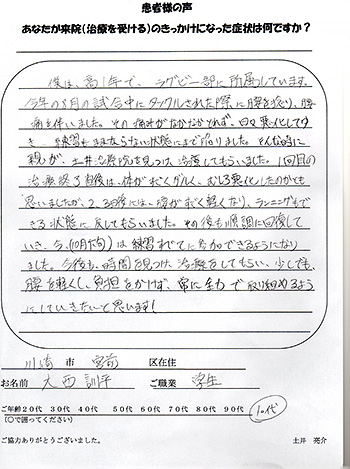 患者様の声
あなたが来院(治療を受ける)のきっかけになった症状は何ですか？
僕は、高1年で、ラグビー部に所属しています。
今年の8月の試合中にタックルされた際に腰を捻り、腰
痛を伴いました。その痛みがなかなかとれず、日々悪化してゆ
き、練習もままならない状態にまで陥りました。そんな時に
親が、土井治療院を見つけ、治療してもらいました。1回目の
治療終了直後は、体がすごくダルく、むしろ悪化したのかとも
思いましたが、2、3日後には、腰がすごく軽くなり、ランニングもで
きる状態に戻してもらいました。その後も順調に回復して
いき、今、(10月下旬)は練習すべてに参加できるようになり
ました。今後も、時間を見つけ、治療をしてもらい、少しでも
腰を軽くし、負担をかけず、常に全力で取り組めるよう
にしていきたいと思います!
川崎 市 宮前 区在住
お名前 大西 訓平 ご職業 学生
ご年齢20代 30代 40代 50代 60代 70代 80代 90代 10代
(○で囲ってください)
ご協力ありがとうございました。 土井 亮介